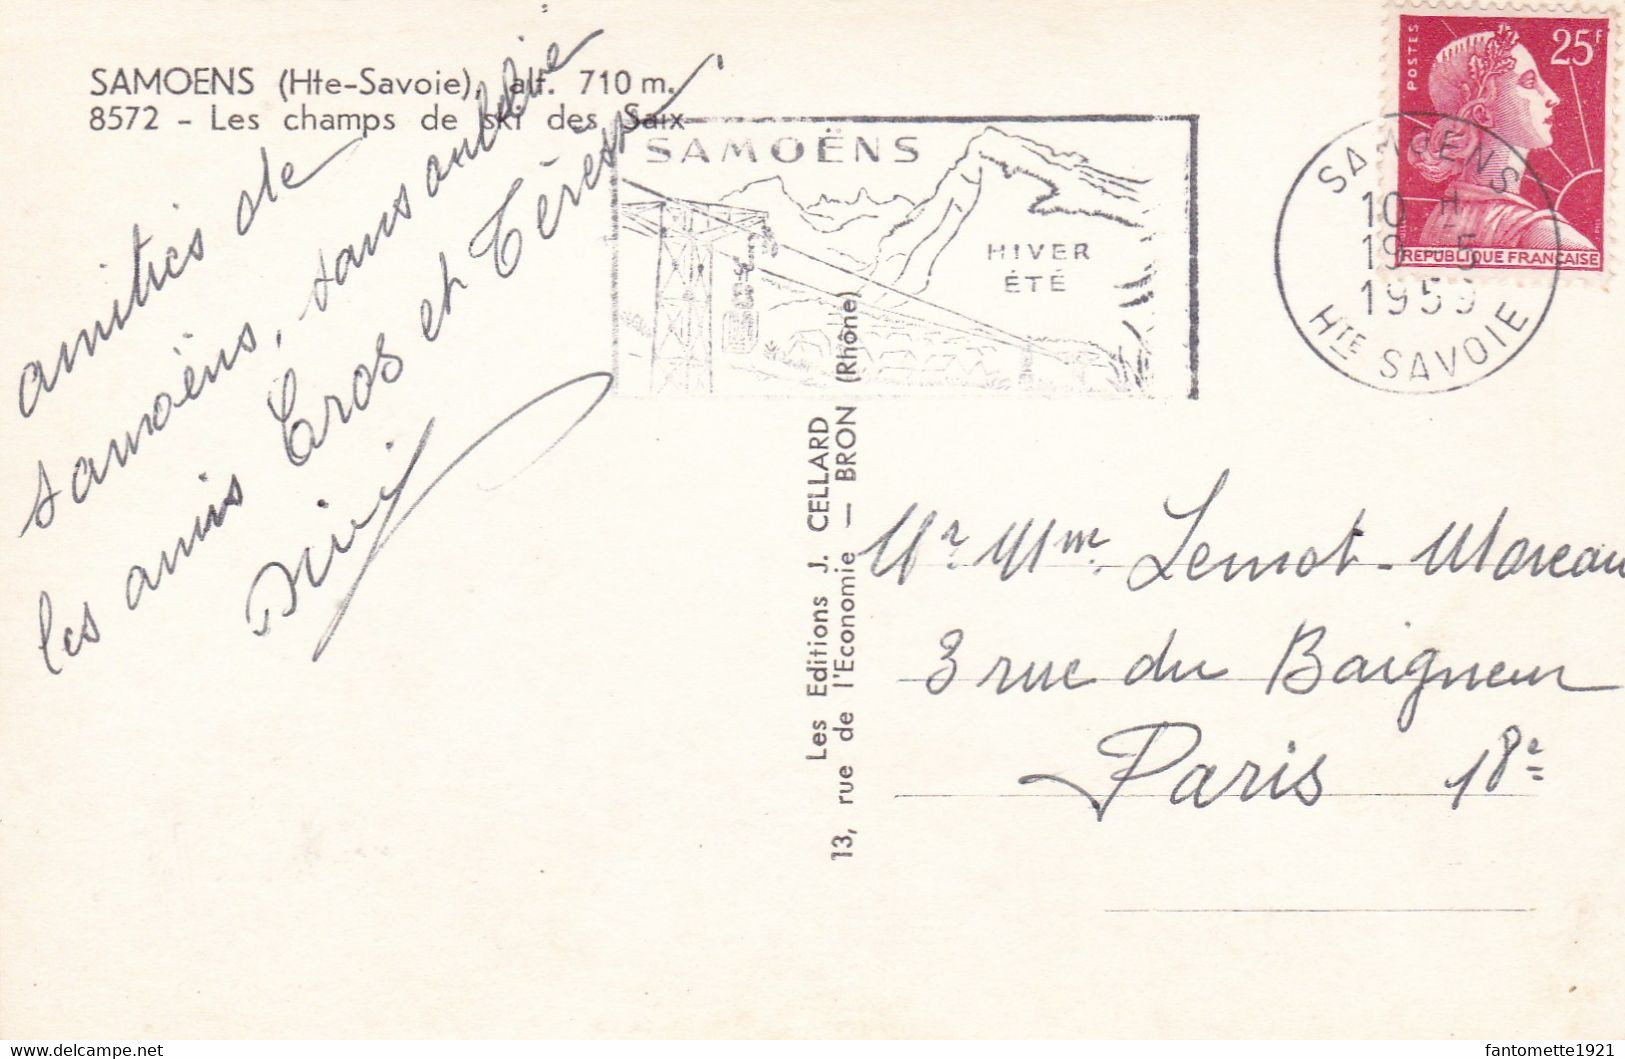 SAMOENS (Hte-Savoie), alt. 710 m.
8572 - Les champs de ski des Saix
amitiés de
samoëns, sans oublier
les amis Cros et Térésa
SAMOËNS
HIVER
ÉTÉ
SAMOENS
10 H
19 - 5
1959
HTE SAVOIE
POSTES
25F
REPUBLIQUE FRANCAISE
Les Editions J. CELLARD
13, rue de l'Economie — BRON (Rhône)
Mr Mme Lemot-Moreau
3 rue du Baigneur
Paris 18e
fantomette1921